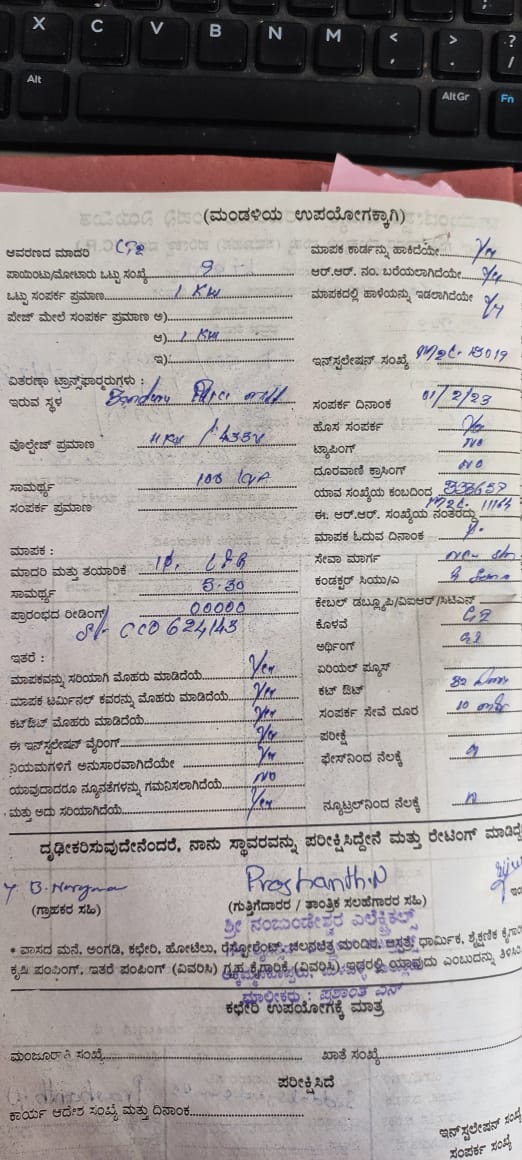 X C V B N M < , > . ? /
Alt AltGr Fn
(ಮಂಡಳಿಯ ಉಪಯೋಗಕ್ಕಾಗಿ)
ಆವರಣದ ಮಾದರಿ
ಮಾಪಕ ಕಾರ್ಡನ್ನು ಹಾಕಿದೆಯೇ Yes
ಪಾಯಿಂಟು/ಮೋಟಾರು ಒಟ್ಟು ಸಂಖ್ಯೆ 9
ಆರ್.ಆರ್. ನಂ. ಬರೆಯಲಾಗಿದೆಯೇ Yes
ಒಟ್ಟು ಸಂಪರ್ಕ ಪ್ರಮಾಣ 1 KW
ಮಾಪಕದಲ್ಲಿ ಹಾಳೆಯನ್ನು ಇಡಲಾಗಿದೆಯೇ Yes
ಪೇಜ್ ಮೇಲೆ ಸಂಪರ್ಕ ಪ್ರಮಾಣ ಅ)
ಆ) 1 KW
ಇ)
ಇನ್‌ಸ್ಟಲೇಷನ್ ಸಂಖ್ಯೆ 13019
ವಿತರಣಾ ಟ್ರಾನ್ಸ್‌ಫಾರ್ಮರುಗಳು :
ಇರುವ ಸ್ಥಳ
ಸಂಪರ್ಕ ದಿನಾಂಕ 01/2/23
ಹೊಸ ಸಂಪರ್ಕ Yes
ವೋಲ್ಟೇಜ್ ಪ್ರಮಾಣ 11KV / 433V
ಟ್ಯಾಪಿಂಗ್ NO
ದೂರವಾಣಿ ಕ್ರಾಸಿಂಗ್ NO
ಸಾಮರ್ಥ್ಯ 100 KVA
ಯಾವ ಸಂಖ್ಯೆಯ ಕಂಬದಿಂದ
ಸಂಪರ್ಕ ಪ್ರಮಾಣ
ಈ. ಆರ್.ಆರ್. ಸಂಖ್ಯೆಯ ನಂತರದ್ದು 11164
ಮಾಪಕ ಓದುವ ದಿನಾಂಕ
ಮಾಪಕ :
ಮಾದರಿ ಮತ್ತು ತಯಾರಿಕೆ
ಸೇವಾ ಮಾರ್ಗ
ಸಾಮರ್ಥ್ಯ 5-30
ಕಂಡಕ್ಟರ್ ಸಿಯು/ಎ
ಪ್ರಾರಂಭದ ರೀಡಿಂಗ್ 00000
ಕೇಬಲ್ ಡಬ್ಲ್ಯೂಪಿ/ವಿಐಆರ್/ಸಿಟಿಎಸ್
Sl- CCO 624143
ಕೊಳವೆ GI
ಅರ್ಥಿಂಗ್ GI
ಇತರೆ :
ಮಾಪಕವನ್ನು ಸರಿಯಾಗಿ ಮೊಹರು ಮಾಡಿದೆಯೆ Yes
ಏರಿಯಲ್ ಫ್ಯೂಸ್
ಮಾಪಕ ಟರ್ಮಿನಲ್ ಕವರನ್ನು ಮೊಹರು ಮಾಡಿದೆಯೆ Yes
ಕಟ್ ಔಟ್ 32
ಕಟ್‌ಔಟ್ ಮೊಹರು ಮಾಡಿದೆಯೆ Yes
ಸಂಪರ್ಕ ಸೇವೆ ದೂರ 10
ಈ ಇನ್‌ಸ್ಟಲೇಷನ್ ವೈರಿಂಗ್ Yes
ಪರೀಕ್ಷೆ
ನಿಯಮಗಳಿಗೆ ಅನುಸಾರವಾಗಿದೆಯೇ Yes
ಫೇಸ್‌ನಿಂದ ನೆಲಕ್ಕೆ
ಯಾವುದಾದರೂ ನ್ಯೂನತೆಗಳನ್ನು ಗಮನಿಸಲಾಗಿದೆಯೆ NO
ಮತ್ತು ಅದು ಸರಿಯಾಗಿದೆಯೆ Yes
ನ್ಯೂಟ್ರಲ್‌ನಿಂದ ನೆಲಕ್ಕೆ
ದೃಢೀಕರಿಸುವುದೇನೆಂದರೆ, ನಾನು ಸ್ಥಾವರವನ್ನು ಪರೀಕ್ಷಿಸಿದ್ದೇನೆ ಮತ್ತು ರೇಟಿಂಗ್ ಮಾಡಿದ್ದೆ
Prashanth.N
(ಗ್ರಾಹಕರ ಸಹಿ)
(ಗುತ್ತಿಗೆದಾರರ / ತಾಂತ್ರಿಕ ಸಲಹೆಗಾರರ ಸಹಿ)
ಶ್ರೀ ನಂಬುಂಡೇಶ್ವರ ಎಲೆಕ್ಟ್ರಿಕಲ್ಸ್
* ವಾಸದ ಮನೆ, ಅಂಗಡಿ, ಕಛೇರಿ, ಹೋಟೆಲು, ರೆಸ್ಟೋರೆಂಟ್, ಚಲನಚಿತ್ರ ಮಂದಿರ, ಆಸ್ಪತ್ರೆ, ಧಾರ್ಮಿಕ, ಶೈಕ್ಷಣಿಕ
ಕೃಷಿ ಪಂಪಿಂಗ್, ಇತರೆ ಪಂಪಿಂಗ್ (ವಿವರಿಸಿ) ಗೃಹ ಕೈಗಾರಿಕೆ (ವಿವರಿಸಿ) ಇದರಲ್ಲಿ ಯಾವುದು ಎಂಬುದನ್ನು
ಮಾಲೀಕರು : ಪ್ರಶಾಂತ ಎನ್
ಕಛೇರಿ ಉಪಯೋಗಕ್ಕೆ ಮಾತ್ರ
ಮಂಜೂರಾತಿ ಸಂಖ್ಯೆ
ಖಾತೆ ಸಂಖ್ಯೆ
ಪರೀಕ್ಷಿಸಿದೆ
ಕಾರ್ಯ ಆದೇಶ ಸಂಖ್ಯೆ ಮತ್ತು ದಿನಾಂಕ
ಇನ್‌ಸ್ಟಲೇಷನ್ ಸಂಖ್ಯೆ
ಸಂಪರ್ಕ ಸಂಖ್ಯೆ